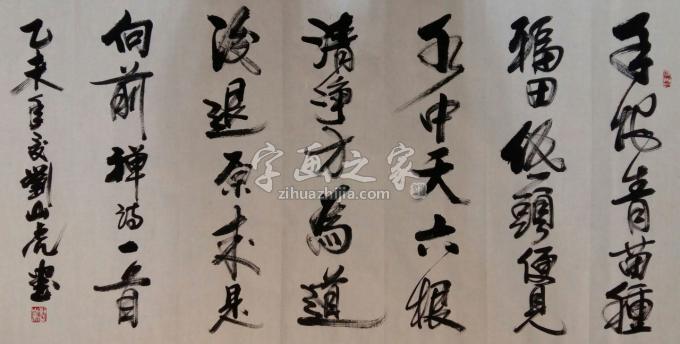 手把青苗種
福田低頭便見
水中天六根
清淨方為道
後退原来是
向前禪詩一首
乙未年夏劉山虎書
字画之家
zihuazhijia.com